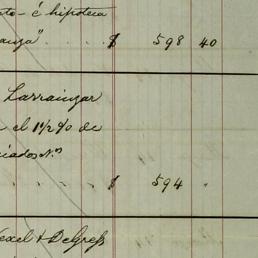 to - é hipoteca
anza" . . . . $ 598 40
Larrainzar
el 1 1/2 % de
ciados Nos
. . . . $ 594 "
exel & Degress